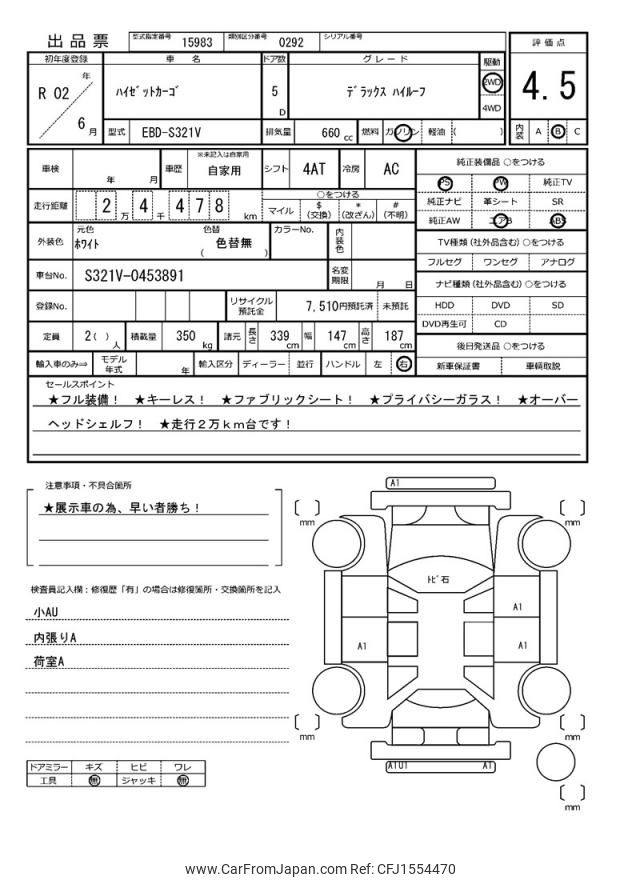 出品票 型式指定番号 15983 類別区分番号 0292 シリアル番号
評価点
初年度登録 車 名 ドア数 グレード 駆動
R 02 年 6 月 ハイゼットカーゴ 5 D デラックス ハイルーフ 2WD 4WD
4.5
型式 EBD-S321V 排気量 660 cc 燃料 ガソリン 軽油 ( )
内装 A B C
車検 年 月 車歴 ※未記入は自家用 自家用 シフト 4AT 冷房 AC
純正装備品 ○をつける
PS PW 純正TV
純正ナビ 革シート SR
純正AW エアB ABS
走行距離 2 万 4 千 4 7 8 km
○をつける
マイル $ (交換) * (改ざん) # (不明)
外装色 元色 ホワイト 色替 色替無 ( ) カラーNo. 内装色
TV種類 (社外品含む) ○をつける
フルセグ ワンセグ アナログ
車台No. S321V-0453891 名変期限 月 日
ナビ種類 (社外品含む) ○をつける
HDD DVD SD
DVD再生可 CD
登録No. リサイクル預託金 7,510円預託済 未預託
定員 2( ) 人 積載量 350 kg 諸元 長さ 339 cm 幅 147 cm 高さ 187 cm
後日発送品 ○をつける
新車保証書 車輌取説
輸入車のみ⇒ モデル年式 年 輸入区分 ディーラー 並行 ハンドル 左 右
セールスポイント
★フル装備！ ★キーレス！ ★ファブリックシート！ ★プライバシーガラス！ ★オーバー
ヘッドシェルフ！ ★走行２万ｋｍ台です！
注意事項・不具合箇所
★展示車の為、早い者勝ち！
検査員記入欄：修復歴「有」の場合は修復箇所・交換箇所を記入
小AU
内張りA
荷室A
ドアミラー キズ ヒビ ワレ
工具 無 ジャッキ 無
A1
mm
mm
トビ石
A1
A1
A1
mm
mm
A1U1 A1
mm
www.CarFromJapan.com Ref: CFJ1554470